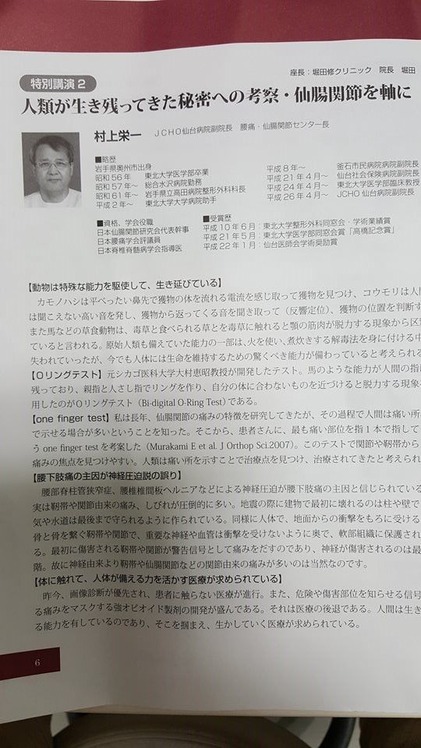 座長：堀田修クリニック　院長　堀田
特別講演 2
人類が生き残ってきた秘密への考察・仙腸関節を軸に
村上栄一　JCHO仙台病院副院長　腰痛・仙腸関節センター長
■略歴
岩手県奥州市出身
昭和56年　東北大学医学部卒業
昭和57年～　総合水沢病院勤務
昭和61年～　岩手県立高田病院整形外科科長
平成2年～　東北大学大学病院助手
平成8年～　釜石市民病院病院副院長
平成21年4月～　仙台社会保険病院副院長
平成24年4月～　東北大学医学部臨床教授
平成26年4月～　JCHO 仙台病院副院長
■資格、学会役職
日本仙腸関節研究会代表幹事
日本腰痛学会評議員
日本脊椎脊髄病学会指導医
■受賞歴
平成10年6月：東北大整形外科同窓会・学術業績賞
平成21年5月：東北大医学部同窓会賞「高橋記念賞」
平成22年1月：仙台医師会学術奨励賞
【動物は特殊な能力を駆使して、生き延びている】
カモノハシは平べったい鼻先で獲物の体を流れる電流を感じ取って獲物を見つけ、コウモリは人間
は聞こえない高い音を発し、獲物から返ってくる音を聞き取って（反響定位）、獲物の位置を判断す
また馬などの草食動物は、毒草と食べられる草とを毒草に触れると顎の筋肉が脱力する現象から区
ていると言われる。原始人類も備えていた能力の一部は、火を使い、煮炊きする解毒法を身に付ける中
失われていったが、今でも人体には生命を維持するための驚くべき能力が備わっていると考えられる
【Ｏリングテスト】元シカゴ医科大学村恵昭教授が開発したテスト。馬のような能力が人間の指に
残っており、親指と人さし指でリングを作り、自分の体に合わないものを近づけると脱力する現象
用したのがＯリングテスト（Bi-digital O-Ring Test）である。
【one finger test】私は長年、仙腸関節の痛みの特徴を研究してきたが、その過程で人間は痛い所
で示せる場合が多いということを知った。そこから、患者さんに、最も痛い部位を指1本で指して
う one finger test を考案した（Murakami E et al. J Orthop Sci.2007）。このテストで関節や靭帯から
痛みの焦点を見つけやすい。人類は痛い所を示すことで治療点を見つけ、治療されてきたと考えられ
【腰下肢痛の主因が神経圧迫説の誤り】
腰部脊柱管狭窄症、腰椎椎間板ヘルニアなどによる神経圧迫が腰下肢痛の主因と信じられている
実は靭帯や関節由来の痛み、しびれが圧倒的に多い。地震の際に建物で最初に壊れるのは柱や壁で
気や水道は最後まで守られるように作られている。同様に人体で、地面からの衝撃をもろに受ける
骨と骨を繋ぐ靭帯や関節で、重要な神経や血管は衝撃を受けないように奥で、軟部組織に保護され
る。最初に傷害される靭帯や関節が警告信号として痛みをだすのであり、神経が傷害されるのは最
階。故に神経由来より靭帯や仙腸関節などの関節由来の痛みが多いのは当然なのです。
【体に触れて、人体が備える力を活かす医療が求められている】
昨今、画像診断が優先され、患者に触らない医療が進行。また、危険や傷害部位を知らせる信号
る痛みをマスクする強オピオイド製剤の開発が盛んである。それは医療の後退である。人間は生き
る能力を有しているのであり、そこを掴まえ、生かしていく医療が求められている。
6